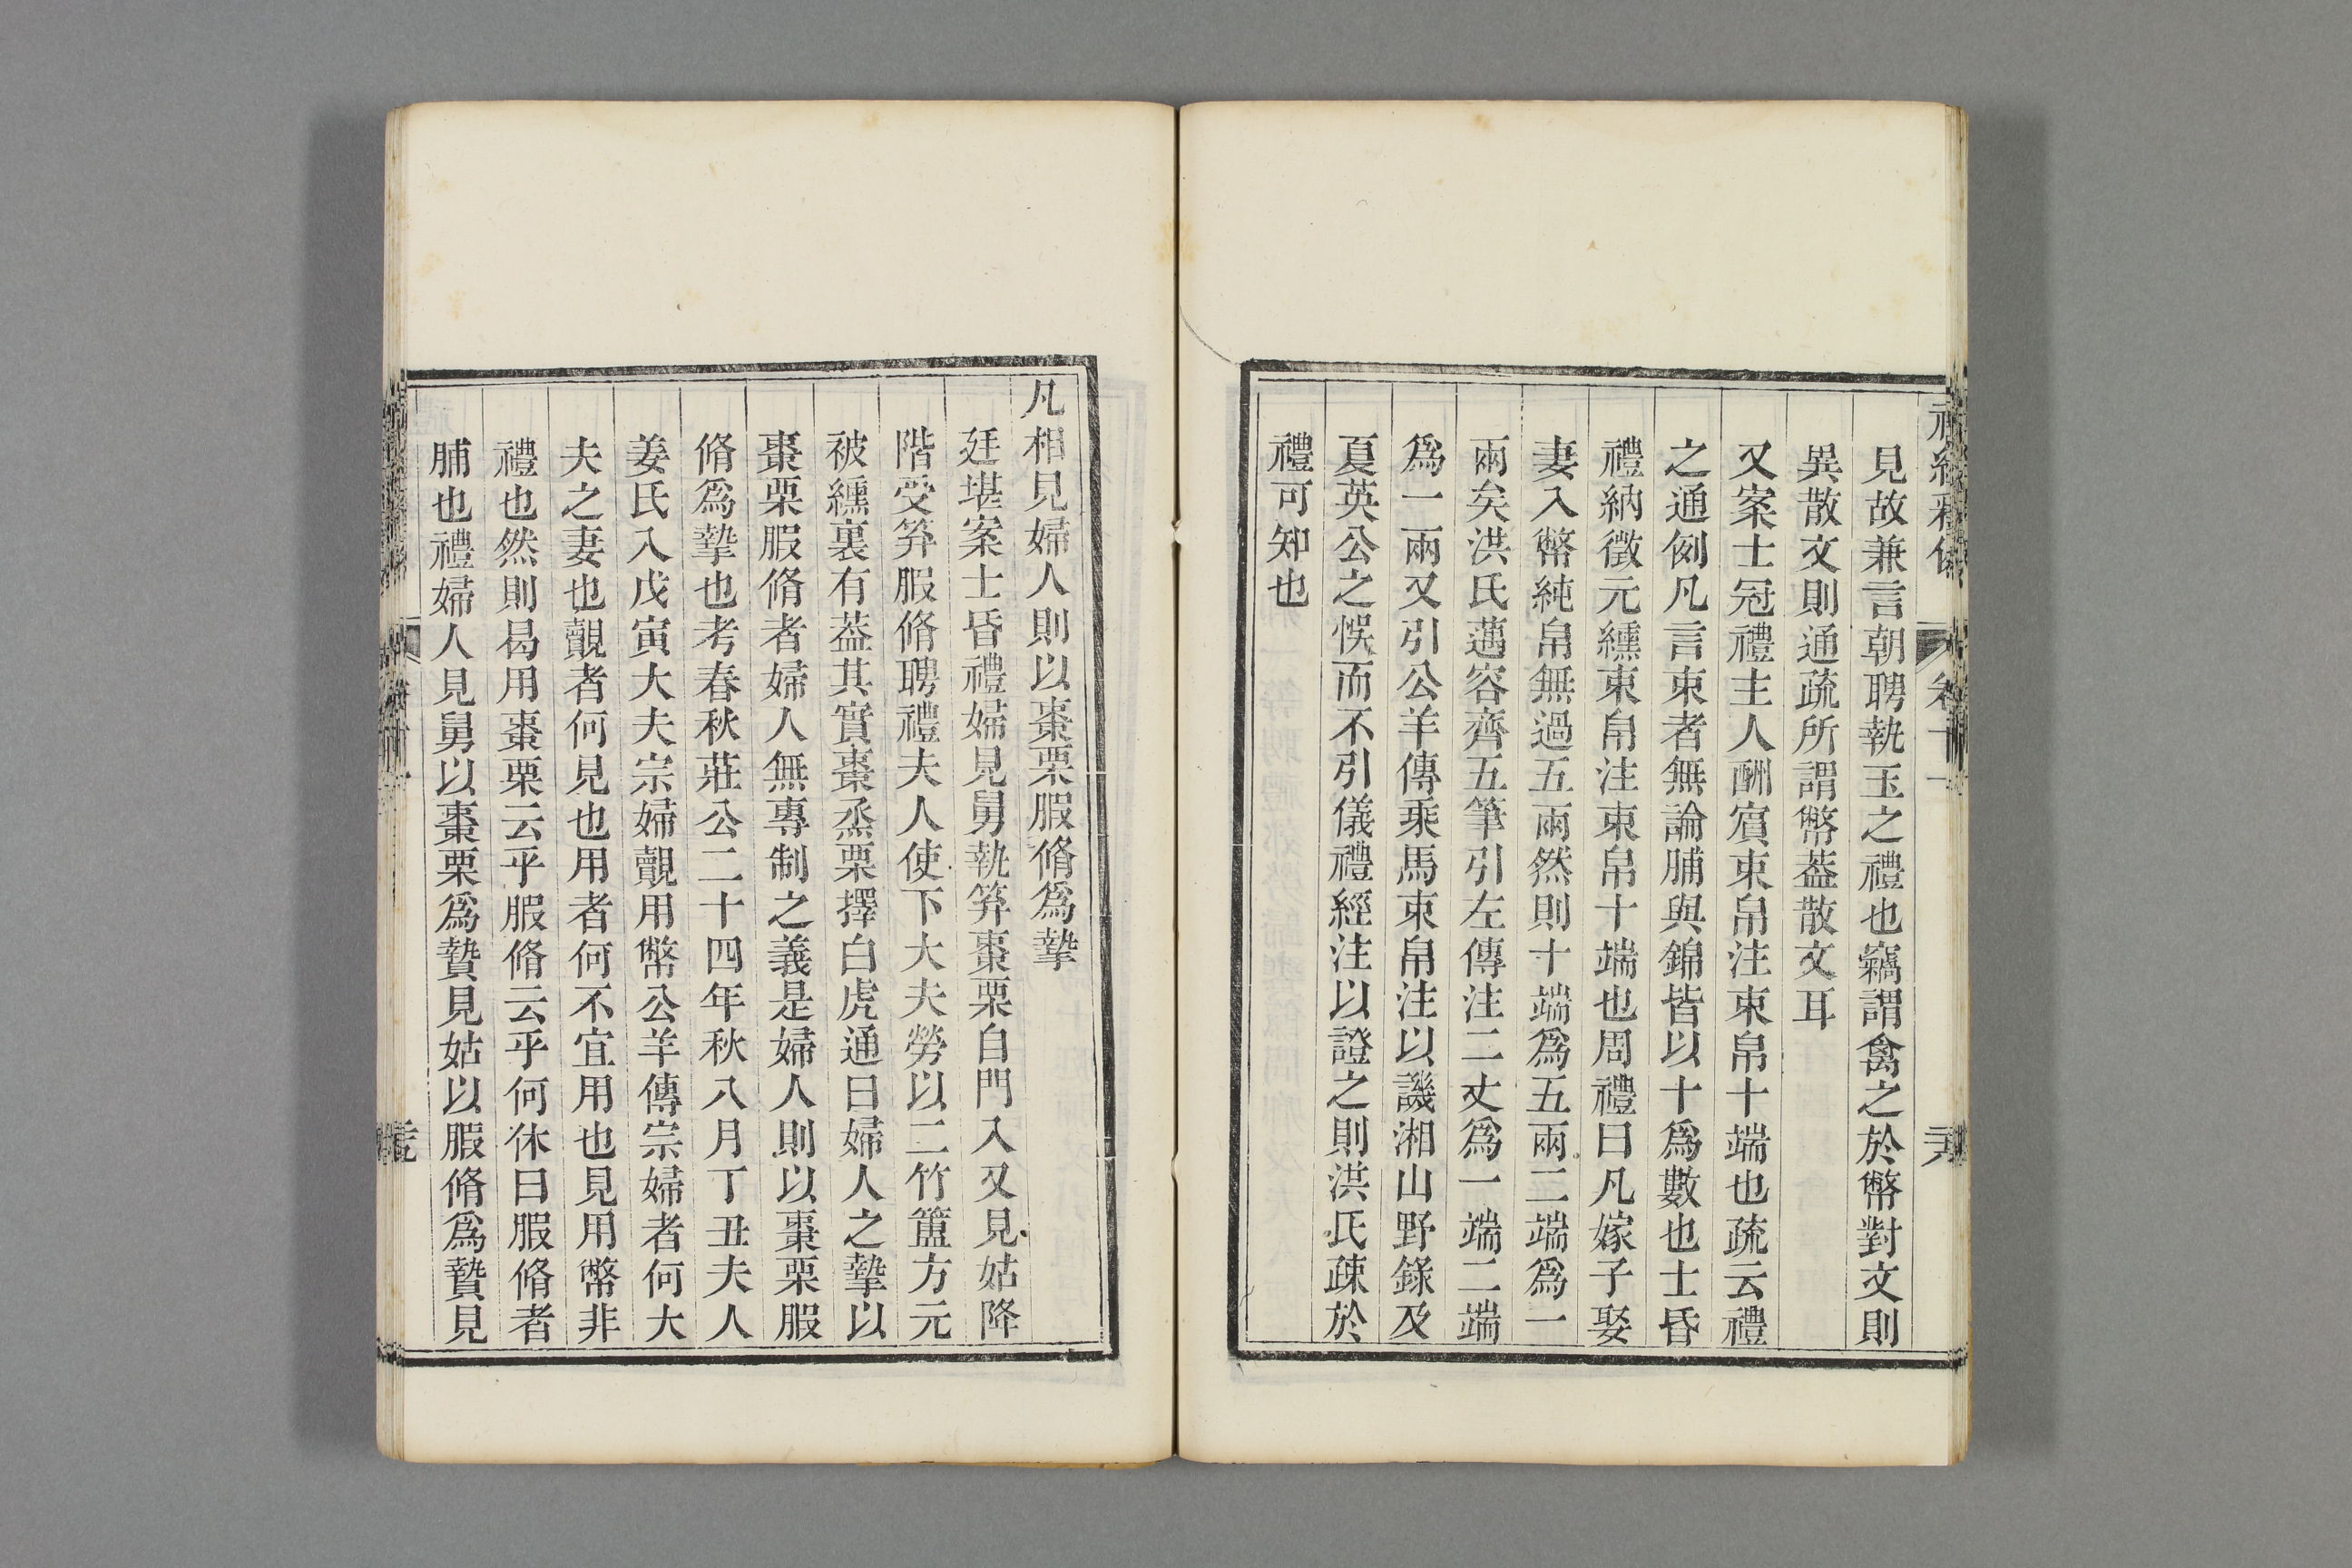 見故兼言朝聘執玉之禮也竊謂禽之於幣對文則
異散文則通疏所謂幣葢散文耳
又案士冠禮主人酬賓束帛注束帛十端也疏云禮
之通例凡言束者無論脯與錦皆以十爲數也士昏
禮納徵元纁束帛注束帛十端也周禮曰凡嫁子娶
妻入幣純帛無過五兩然則十端爲五兩二端爲一
兩矣洪氏邁容齊五筆引左傳注二丈爲一端二端
爲一兩又引公羊傳乘馬束帛注以譏湘山野錄及
夏英公之悞而不引儀禮經注以證之則洪氏疎於
禮可知也
凡相見婦人則以棗栗腶脩爲摯
廷堪案士昏禮婦見舅執笲棗栗自門入又見姑降
階受笲腶脩聘禮夫人使下大夫勞以二竹簠方元
被纁裏有葢其實棗烝栗擇白虎通曰婦人之摯以
棗栗腶脩者婦人無專制之義是婦人則以棗栗腶
脩爲摯也考春秋莊公二十四年秋八月丁丑夫人
姜氏入戊寅大夫宗婦覿用幣公羊傳宗婦者何大
夫之妻也覿者何見也用者何不宜用也見用幣非
禮也然則曷用棗栗云乎腶脩云乎何休曰腶脩者
脯也禮婦人見舅以棗栗爲贄見姑以腶脩爲贄見